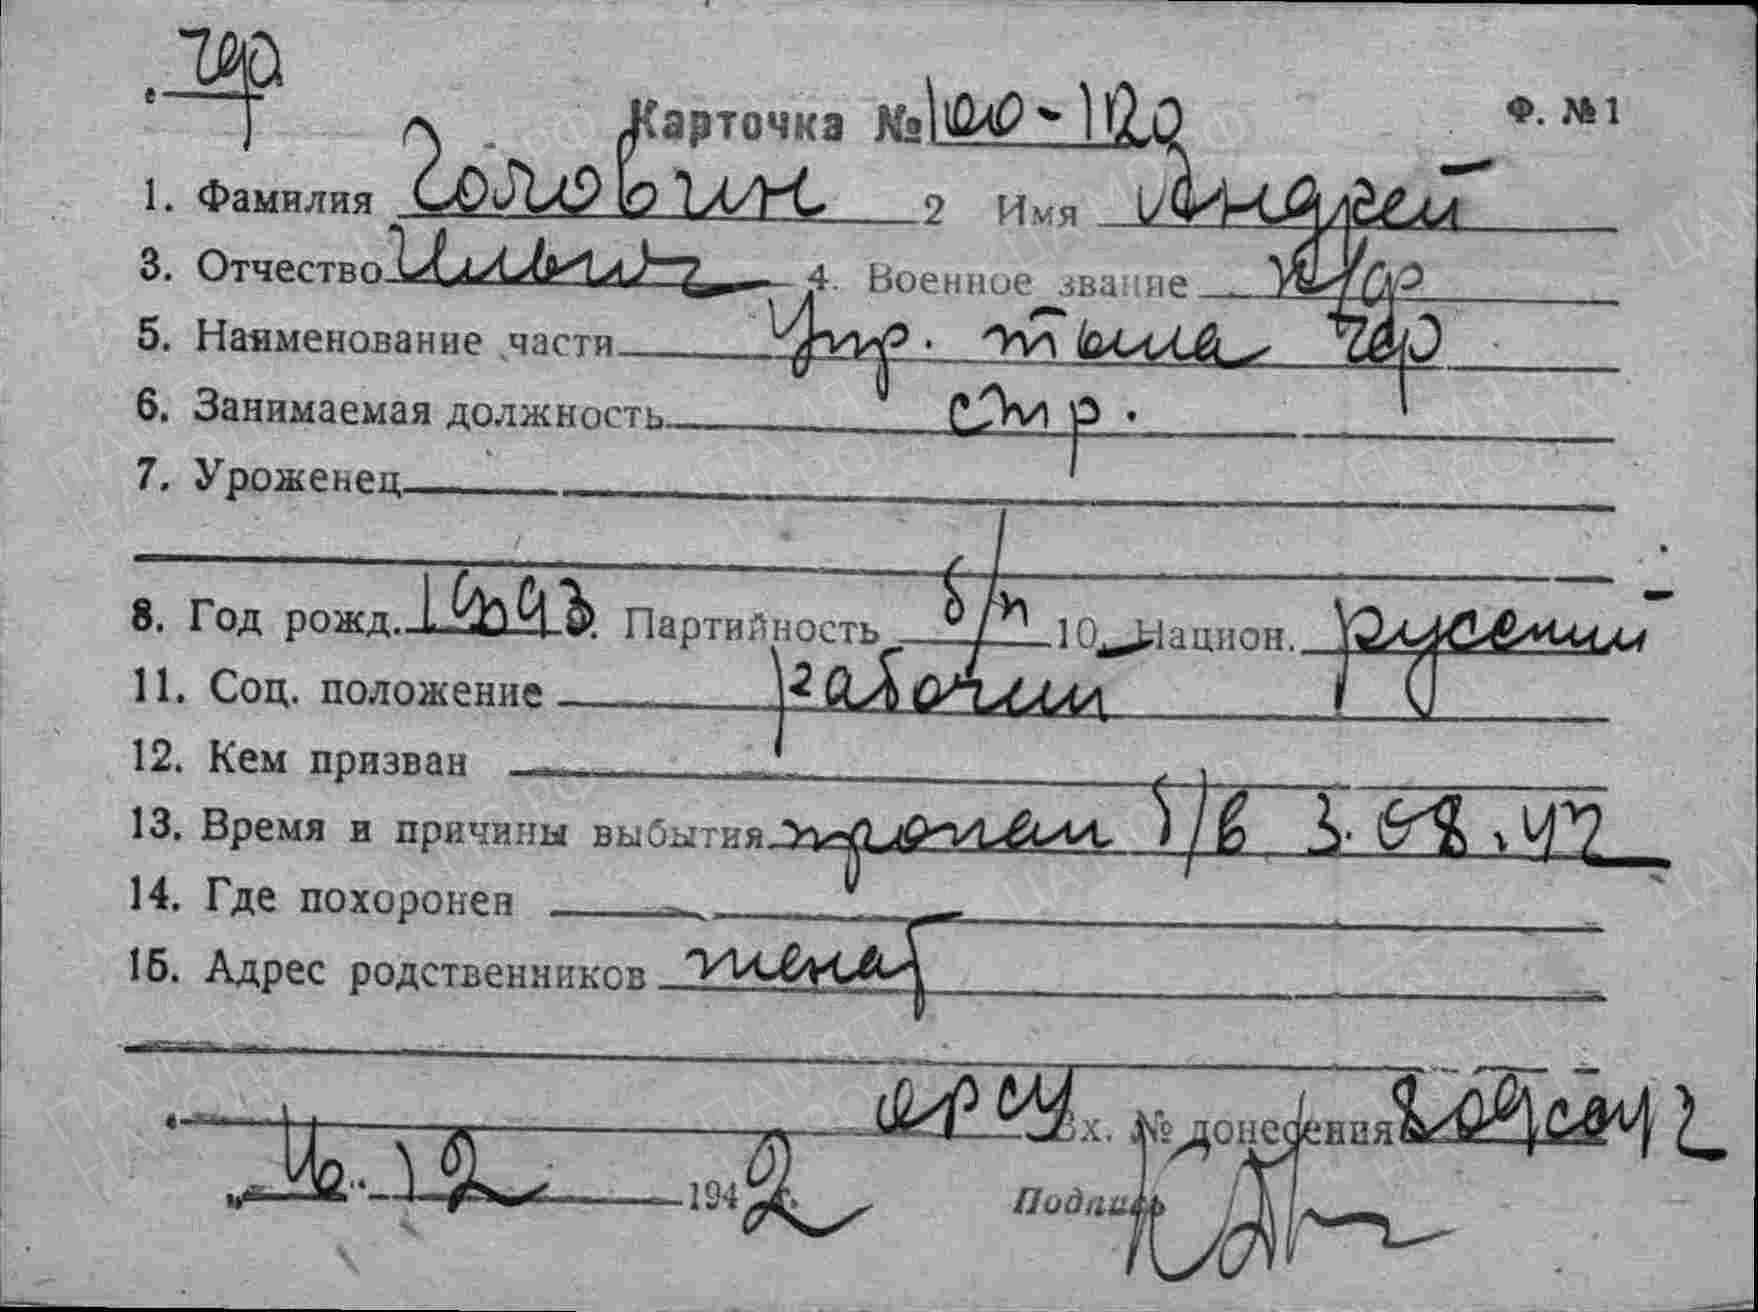 Карточка № 100-1120 Ф. № 1
1. Фамилия Головин 2 Имя Андрей
3. Отчество Ильич 4. Военное звание к/ф
5. Наименование части Упр. тыла
6. Занимаемая должность стр.
7. Уроженец
8. Год рожд. 1893. Партийность б/п 10. Национ. русский
11. Соц. положение рабочий
12. Кем призван
13. Время и причины выбытия пропал б/в 3.08.42
14. Где похоронен
15. Адрес родственников жена
Вх. № донесения
12 1942 г. Подпись